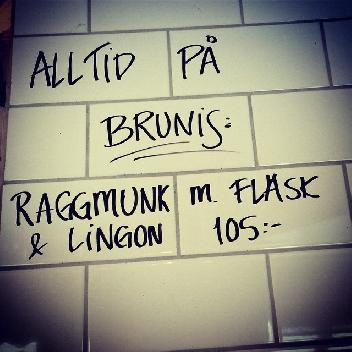 ALLTID PÅ
BRUNIS:
RAGGMUNK M. FLÄSK
& LINGON 105:-